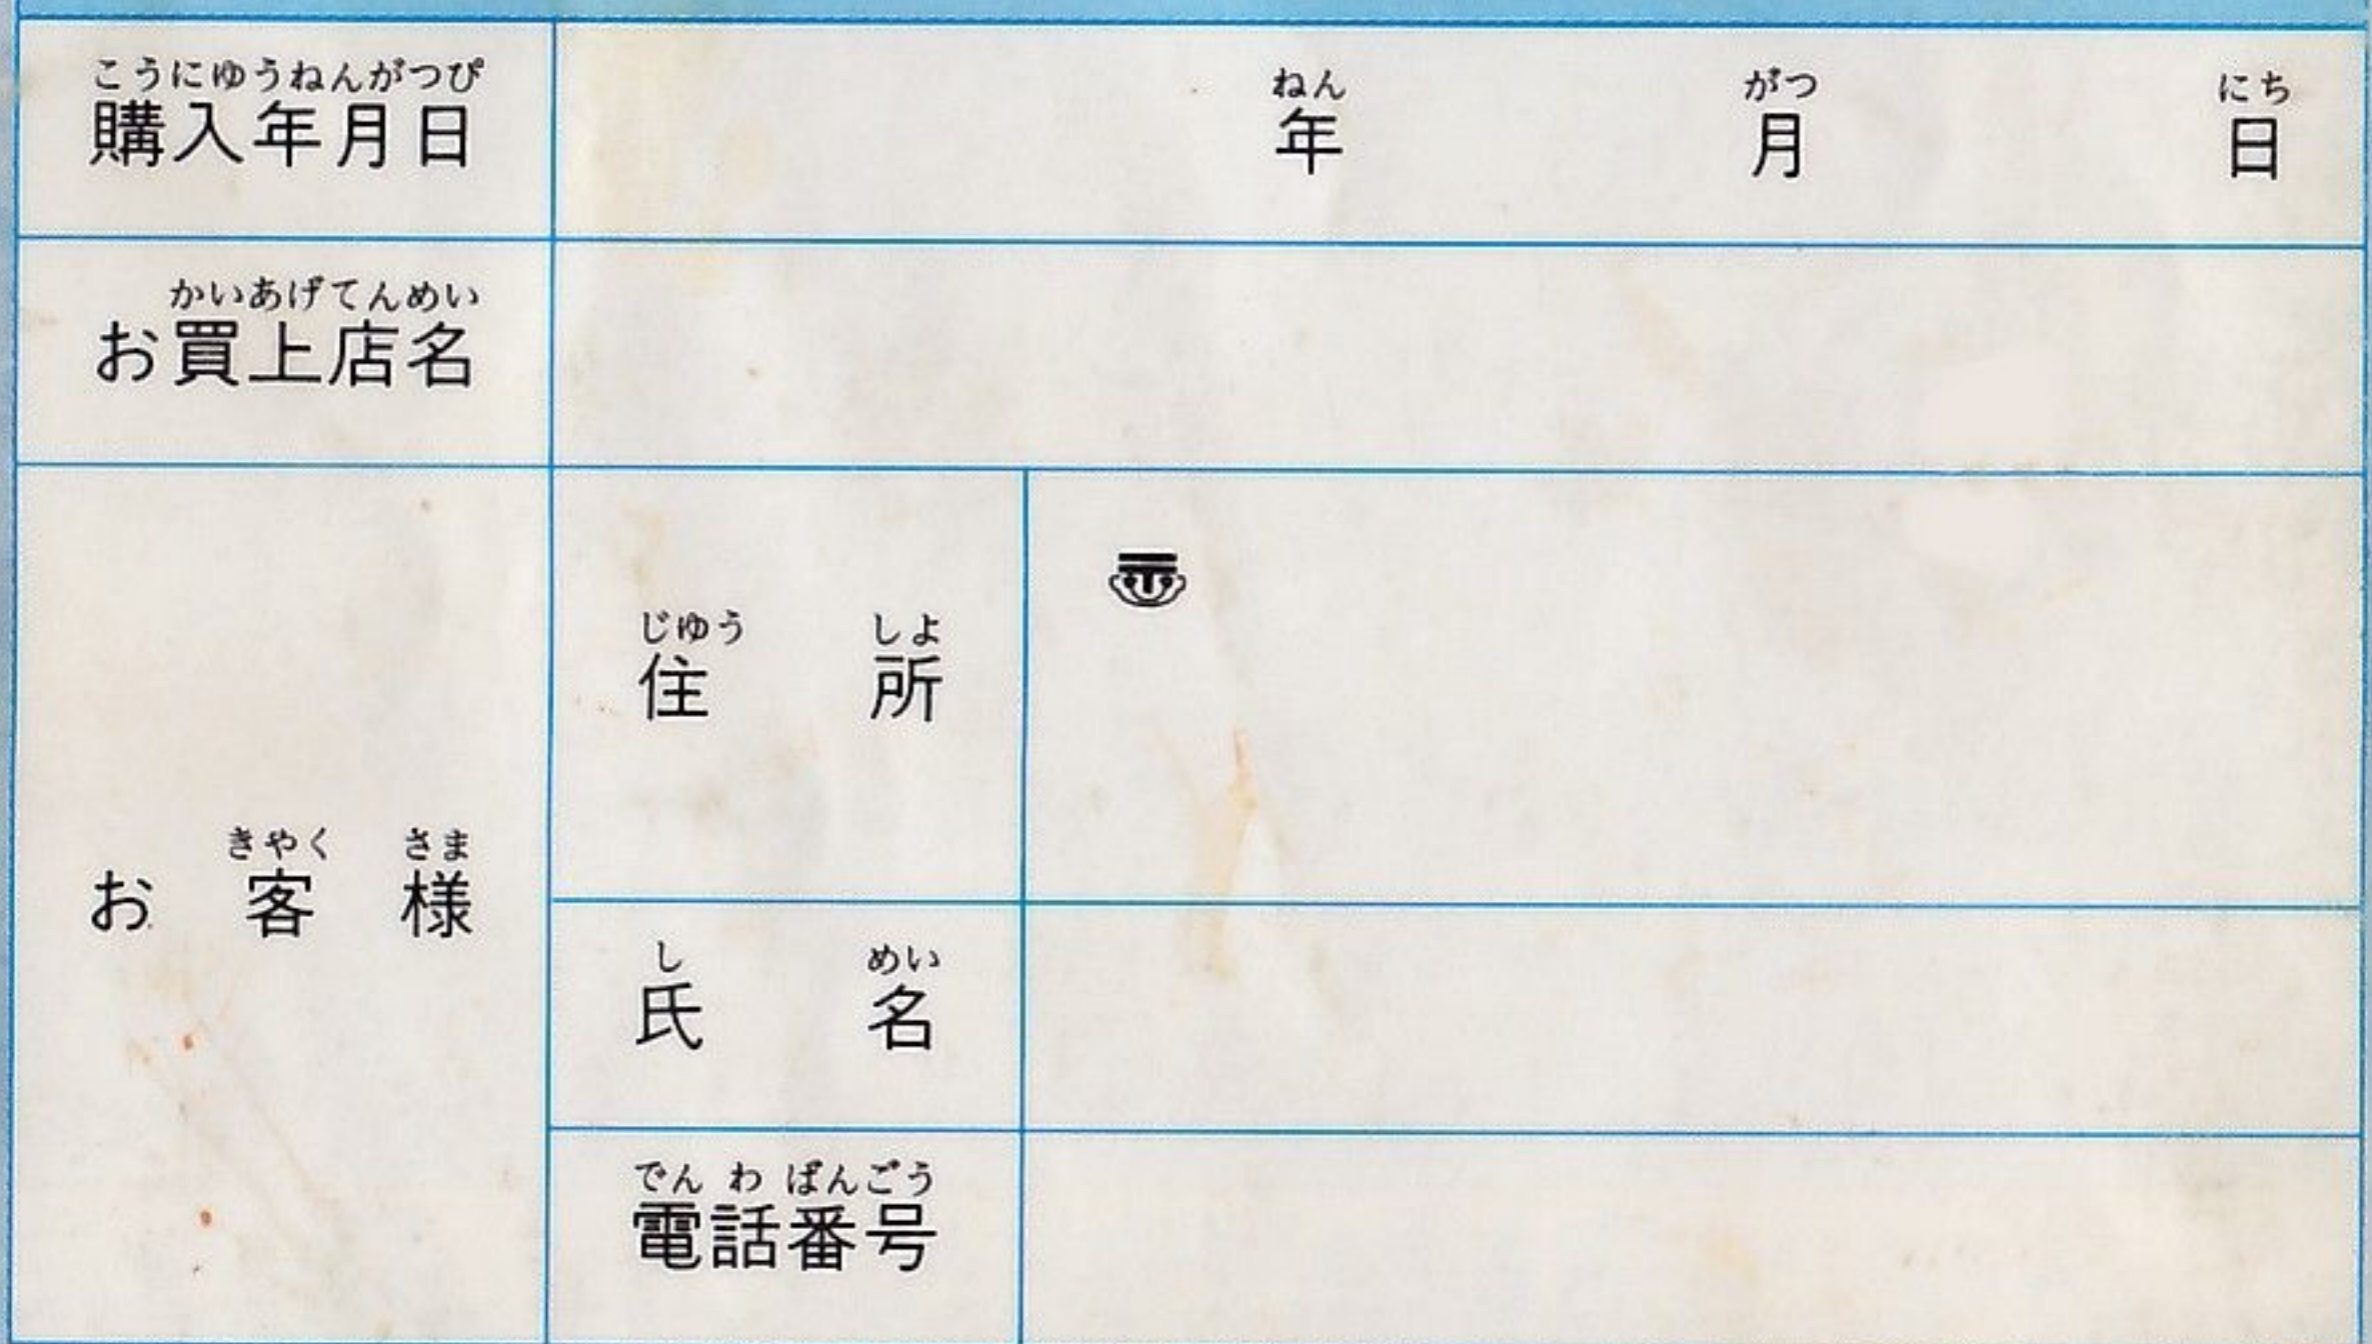 こうにゆうねんがつぴ
購入年月日
ねん がつ にち
年 月 日
かいあげてんめい
お買上店名
きやく さま
お客様
じゆう しよ
住所
〠
し めい
氏名
でん わ ばんごう
電話番号